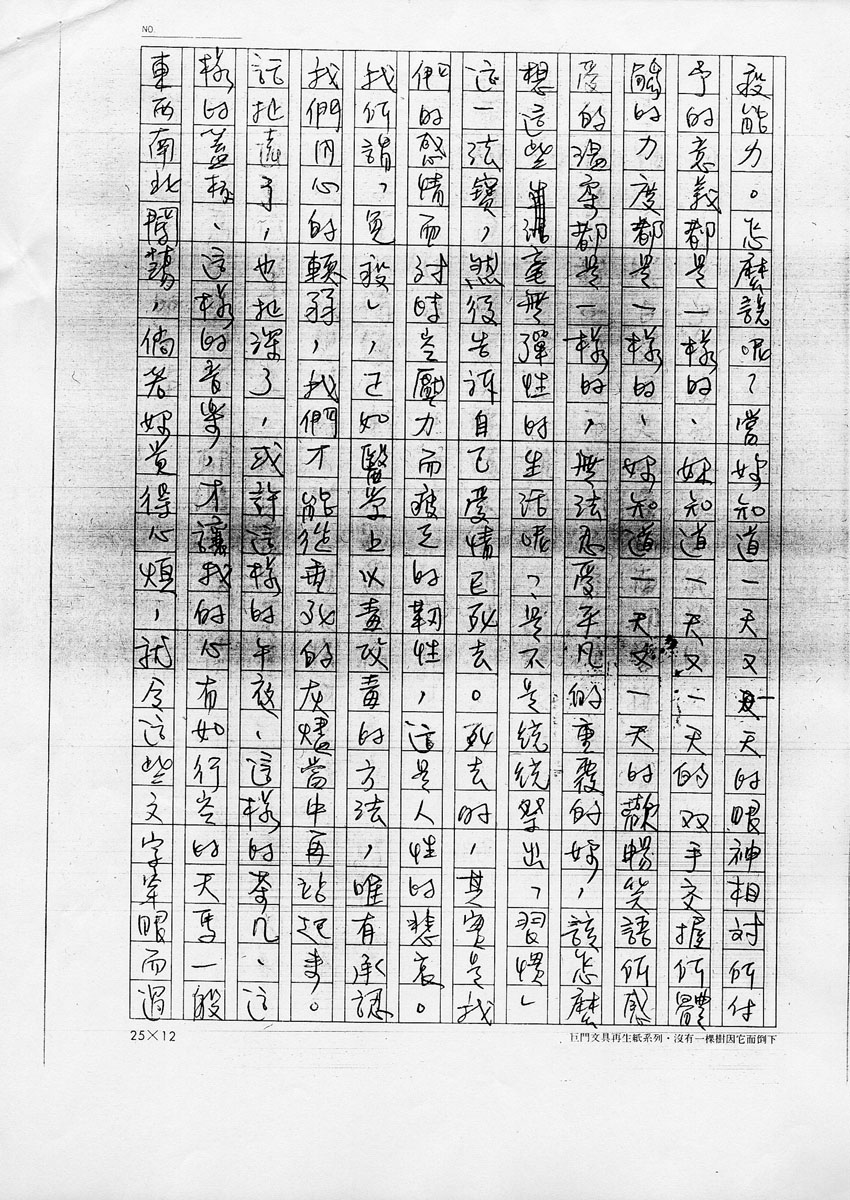 NO.
殺能力。怎麼說呢？當妳知道一天又一天的眼神相對所付
予的意義都是一樣的、妳知道一天又一天的双手交握所體
觸的力度都是一樣的、妳知道一天又一天的歡暢笑語所感
受的溫柔都是一樣的，無法忍受平凡的重覆的妳，該怎麼
想這些生活毫無彈性的生活呢？是不是統統祭出「習慣」
這一法寶，然後告訴自己愛情已死去。死去的，其實是我
們的感情面對時空壓力而疲乏的韌性，這是人性的悲哀。
我所謂「免疫」，正如醫學上以毒攻毒的方法，唯有承認
我們內心的軟弱，我們才能從垂死的灰燼當中再站起來。
話扯遠了，也扯深了，或許這樣的午夜、這樣的茶几、這
樣的蓋杯、這樣的音樂，才讓我的心有如行空的天馬一般
東西南北闖蕩，倘若妳覺得心煩，就令這些文字牽眼而過
25×12
巨門文具再生紙系列・沒有一棵樹因它而倒下